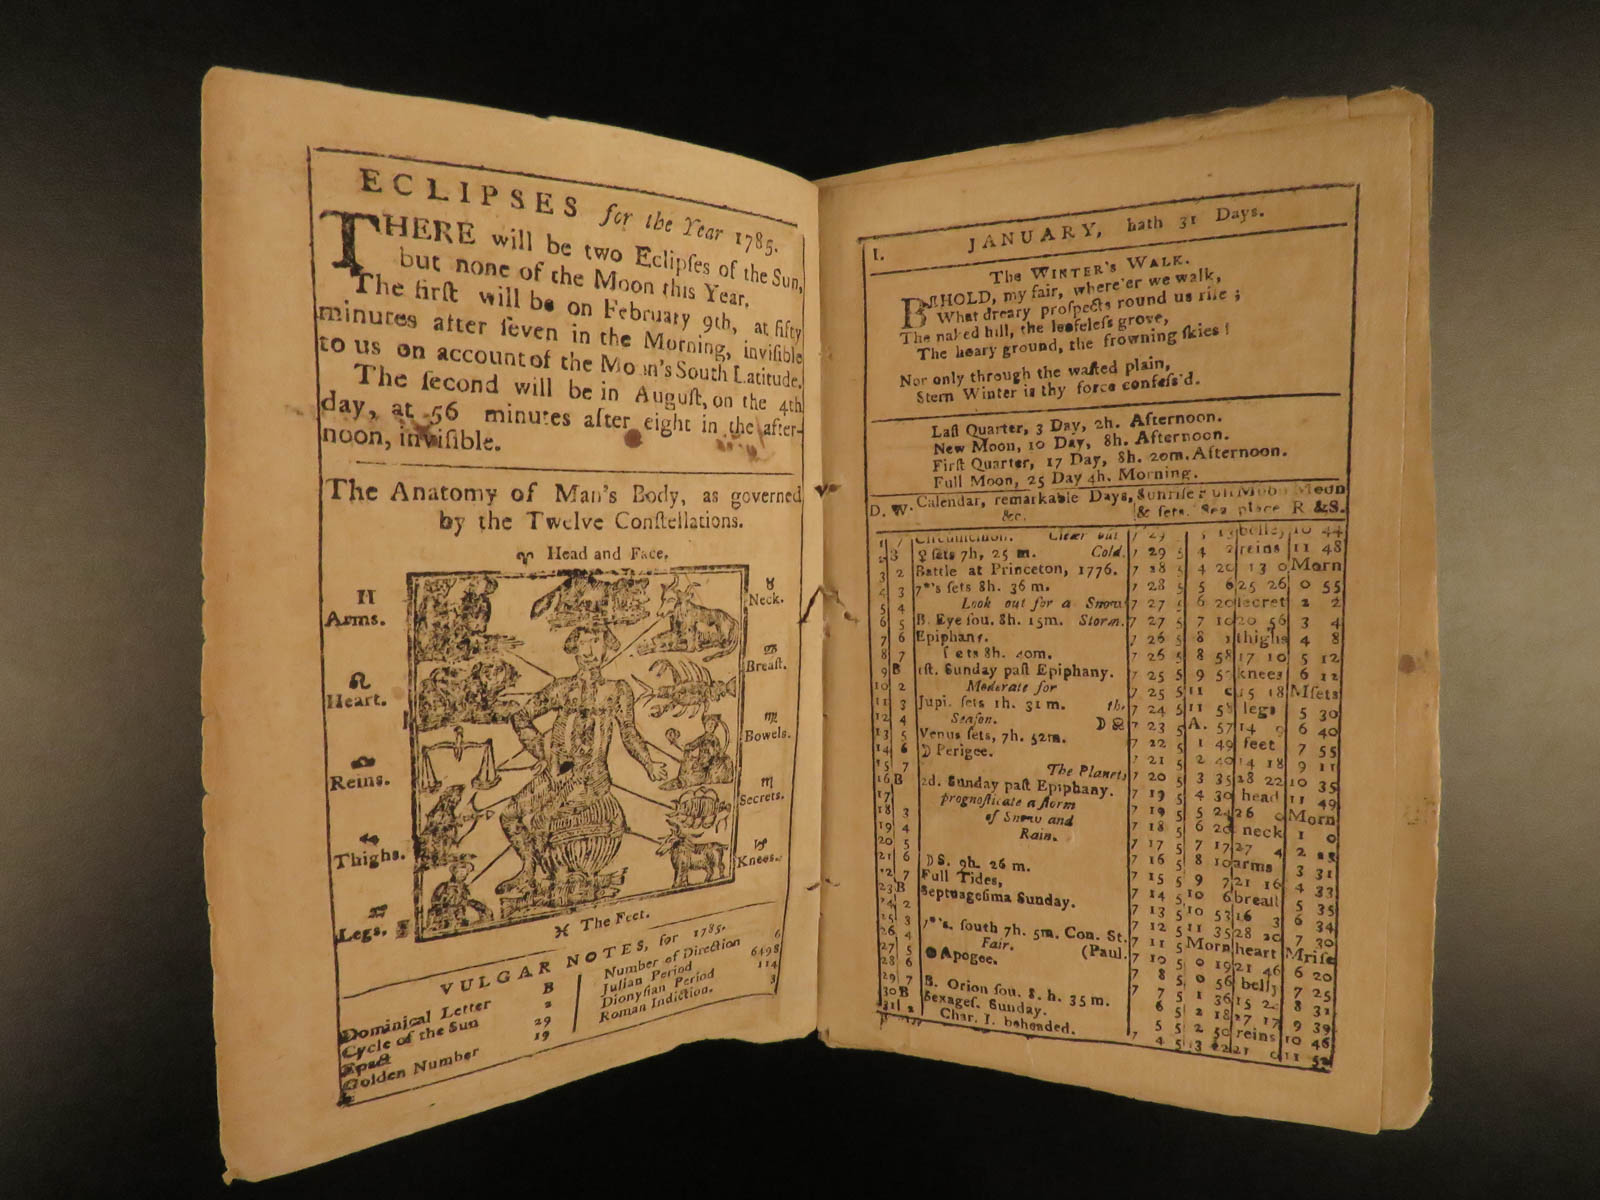 ECLIPSES for the Year 1785.
THERE will be two Eclipſes of the Sun,
but none of the Moon this Year.
The firſt will be on February 9th, at fifty
minutes after ſeven in the Morning, inviſible
to us on account of the Mo n's South Latitude.
The ſecond will be in Auguſt, on the 4th
day, at 56 minutes after eight in the after-
noon, inviſible.
The Anatomy of Man's Body, as governed
by the Twelve Conſtellations.
♈ Head and Face.
♊ Arms.
♉ Neck.
♌ Heart.
♋ Breaſt.
♎ Reins.
♍ Bowels.
♐ Thighs.
♏ Secrets.
♒ Legs.
♑ Knees.
♓ The Feet.
VULGAR NOTES, for 1785.
Dominical Letter B
Cycle of the Sun 2
Epact 29
Golden Number 19
Number of Direction 6
Julian Period 6498
Dionyſian Period 114
Roman Indiction. 3
I. JANUARY, hath 31 Days.
The WINTER'S WALK.
BEHOLD, my fair, where'er we walk,
What dreary proſpects round us riſe;
The naked hill, the leafeleſs grove,
The hoary ground, the frowning ſkies!
Nor only through the waſted plain,
Stern Winter is thy force confeſs'd.
Laſt Quarter, 3 Day, 2h. Afternoon.
New Moon, 10 Day, 8h. Afternoon.
Firſt Quarter, 17 Day, 8h. 20m. Afternoon.
Full Moon, 25 Day 4h. Morning.
D. W. Calendar, remarkable Days, Sunriſe Moon Moon
&c. & ſets. Sea place R &S.
1 7 Circumciſion. Clear but 7 29 5 belley 10 44
2 3 ♀ ſets 7h, 25 m. Cold. 7 29 5 4 2 reins 11 48
3 2 Battle at Princeton, 1776. 7 28 5 4 20 13 0 Morn
4 3 7*'s ſets 8h. 36 m. 7 28 5 5 6 25 26 0 55
5 4 Look out for a Snow 7 27 5 6 20 ſecret 2 2
6 5 B. Eye ſou. 8h. 15m. Storm. 7 27 5 7 10 20 56 3 4
7 6 Epiphany. 7 26 5 8 1 thighs 4 8
8 7 ſets 8h. 40m. 7 26 5 8 58 17 10 5 12
9 B 1ſt. Sunday paſt Epiphany. 7 25 5 9 5 knees 6 12
10 2 Moderate for 7 25 5 11 15 18 Mſets
11 3 Jupi. ſets 1h. 31 m. th. 7 24 5 11 58 legs 5 30
12 4 Seaſon. ☽ ☊ 7 23 5 A. 57 14 9 6 40
13 5 Venus ſets, 7h. 52m. 7 22 5 1 49 feet 7 55
14 6 ☽ Perigee. 7 21 5 2 40 14 18 9 11
15 7 The Planets 7 20 5 3 35 28 22 10 35
16 B 2d. Sunday paſt Epiphany. 7 19 5 4 30 head 11 49
17 prognoſticate a ſtorm 7 19 5 5 24 26 0 Morn
18 3 of Snow and 7 18 5 6 20 neck 1 0
19 4 Rain. 7 17 5 7 17 27 4 2
20 5 7 16 5 8 10 arms 3 31
21 6 ☽ S. 9h. 26 m. 7 15 5 9 7 21 16 4 33
22 7 Full Tides, 7 14 5 10 6 breaſt 5 35
23 B Septuageſima Sunday. 7 13 5 10 53 16 3 6 34
24 2 7 12 5 11 35 28 20 7 30
25 3 7*'s. ſouth 7h. 5m. Con. St. 7 11 5 Morn heart Mriſe
26 4 Fair. (Paul. 7 10 5 0 19 21 46 6 20
27 5 ●Apogee. 7 8 5 0 56 belly 7 25
28 6 7 7 5 1 36 15 2 8 31
29 7 B. Orion ſou. 8. h. 35 m. 6 5 2 18 27 17 9 39
30 B Sexageſ. Sunday. 5 5 2 50 reins 10 46
31 2 Char. I. beheaded. 7 4 5 3 21 0 11 52